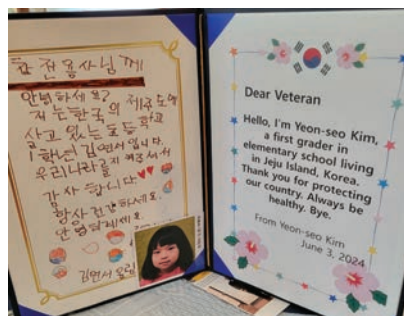 참전용사님께
안녕하세요?
저는 한국의 제주도에
살고 있는 초등학교
1학년 김연서입니다.
우리나라를 지켜주셔서
감사합니다
항상 건강하세요.
안녕히계세요.
김연서 올림
Dear Veteran
Hello, I'm Yeon-seo Kim,
a first grader in
elementary school living
in Jeju Island, Korea.
Thank you for protecting
our country. Always be
healthy. Bye.
From Yeon-seo Kim
June 3, 2024